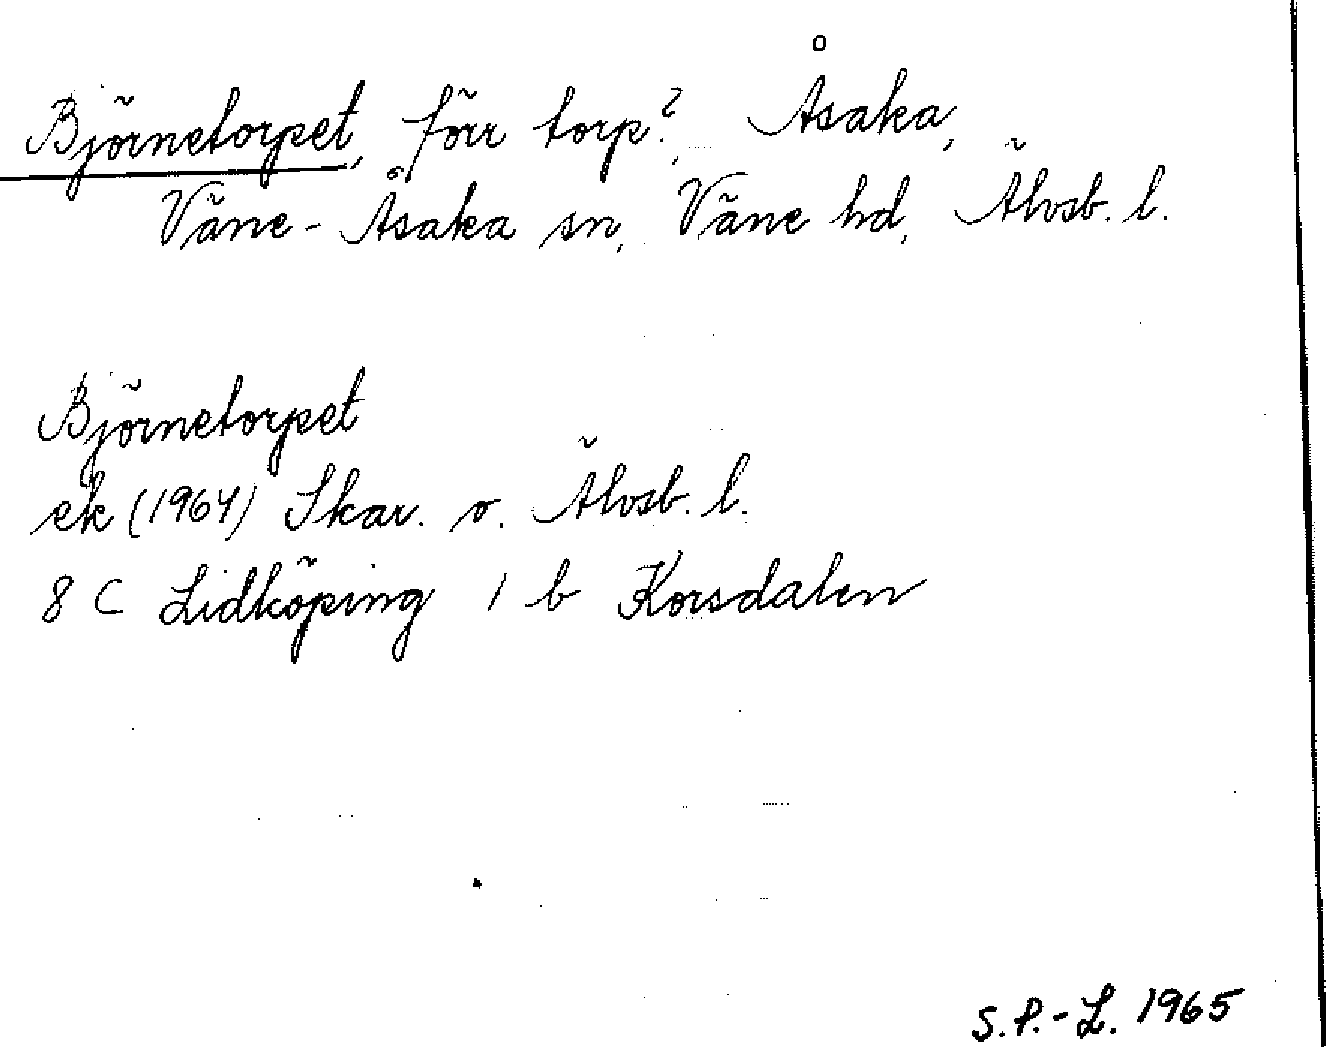 Björnetorpet, förr torp?, Åsaka,
Väne-Åsaka sn, Väne hd, Älvsb. l.
Björnetorpet
ek (1964) Skar. o. Älvsb. l.
8 C Lidköping 1 b Korsdalen
S.P.-L. 1965